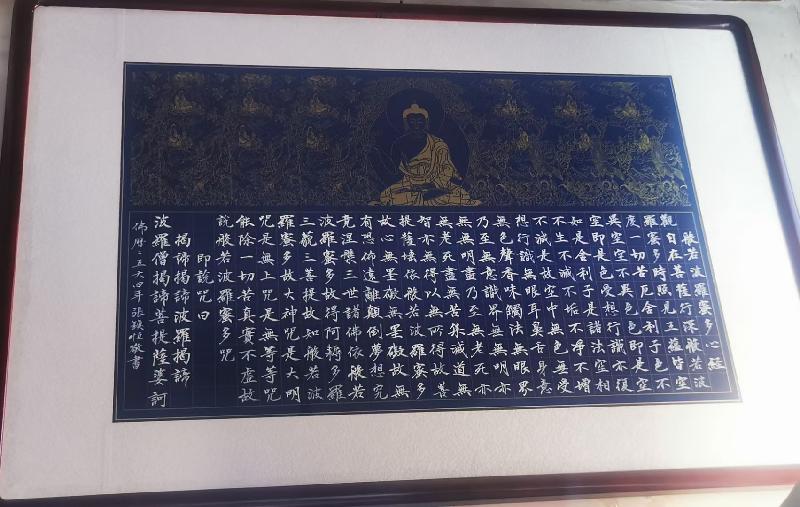 般若波羅蜜多心經
觀自在菩薩行深般若波
羅蜜多時照見五蘊皆空
度一切苦厄舍利子色不
異空空不異色色即是空
空即是色受想行識亦復
如是舍利子是諸法空相
不生不滅不垢不淨不增
不減是故空中無色無受
想行識無眼耳鼻舌身意
無色聲香味觸法無眼界
乃至無意識界無無明亦
無無明盡乃至無老死亦
無老死盡無苦集滅道無
智亦無得以無所得故菩
提薩埵依般若波羅蜜多
故心無罣礙無罣礙故無
有恐怖遠離顛倒夢想究
竟涅槃三世諸佛依般若
波羅蜜多故得阿耨多羅
三藐三菩提故知般若波
羅蜜多是大神咒是大明
咒是無上咒是無等等咒
能除一切苦真實不虛故
說般若波羅蜜多咒
即說咒曰
揭諦揭諦波羅揭諦
波羅僧揭諦菩提薩婆訶
佛曆二五六四年 張恒敬書